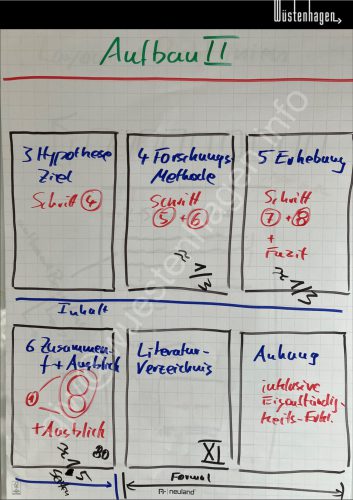 Wüstenhagen
Aufbau II
3 Hypothese
Ziel
Schritt 4
4 Forschungs
Methode
Schritt
5 + 6
≈ 1/3
5 Erhebung
Schritt
7 + 8
+
Fazit
≈ 1/3
Inhalt
6 Zusammen-
f + Ausblick
+ Ausblick
Literatur-
Verzeichnis
XI
Anhang
inklusive
Eigenständig-
keits-Erkl.
Formal
neuland